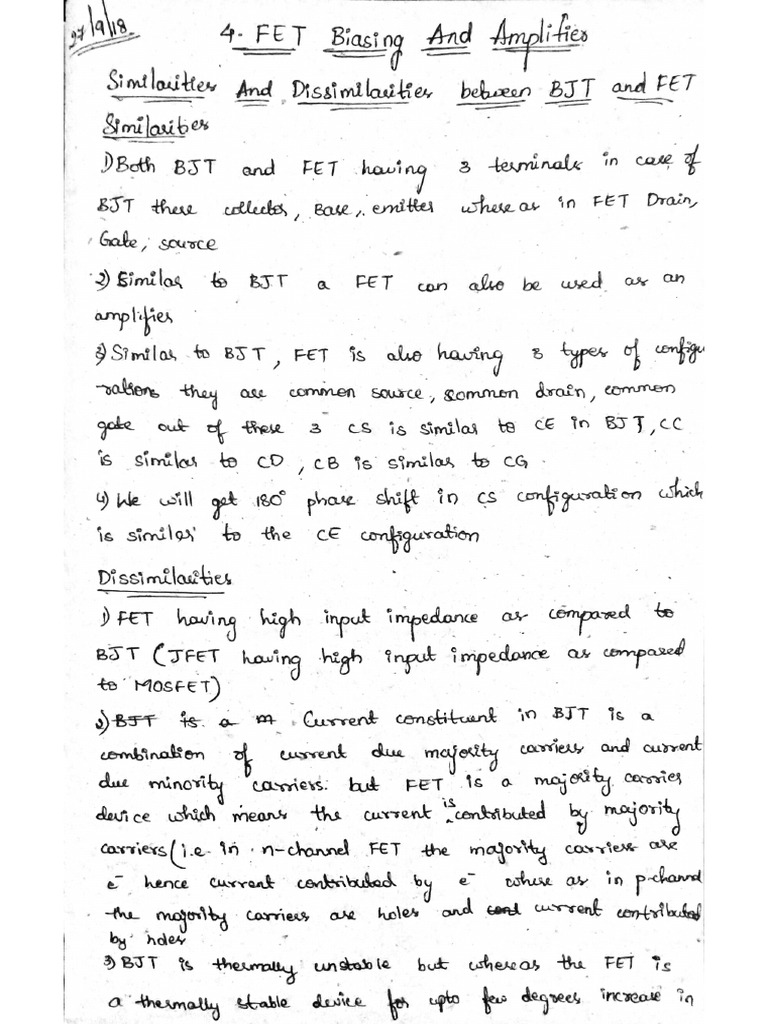 27/9/18.
4. FET Biasing And Amplifier
Similarities And Dissimilarities between BJT and FET
Similarities
1) Both BJT and FET having 3 terminals in case of
BJT these collector, Base, emitter where as in FET Drain,
Gate, source
2) Similar to BJT a FET can also be used as an
amplifier
3) Similar to BJT, FET is also having 3 types of configu
rations they are common source, common drain, common
gate out of these 3 CS is similar to CE in BJT, CC
is similar to CD, CB is similar to CG.
4) We will get 180° phase shift in CS configuration which
is similar to the CE configuration
Dissimilarities
1) FET having high input impedance as compared to
BJT (JFET having high input impedance as compared
to MOSFET)
2) BJT is a m Current constituent in BJT is a
combination of current due majority carriers and current
due minority carriers. but FET is a majority carrier
device which means the current is contributed by majority
carriers (i.e. in n-channel FET the majority carriers are
e⁻ hence current contributed by e⁻ where as in p-chann
the majority carriers are holes and current contributed
by holes
3) BJT is thermally unstable but whereas the FET is
a thermally stable device for upto few degrees increase in